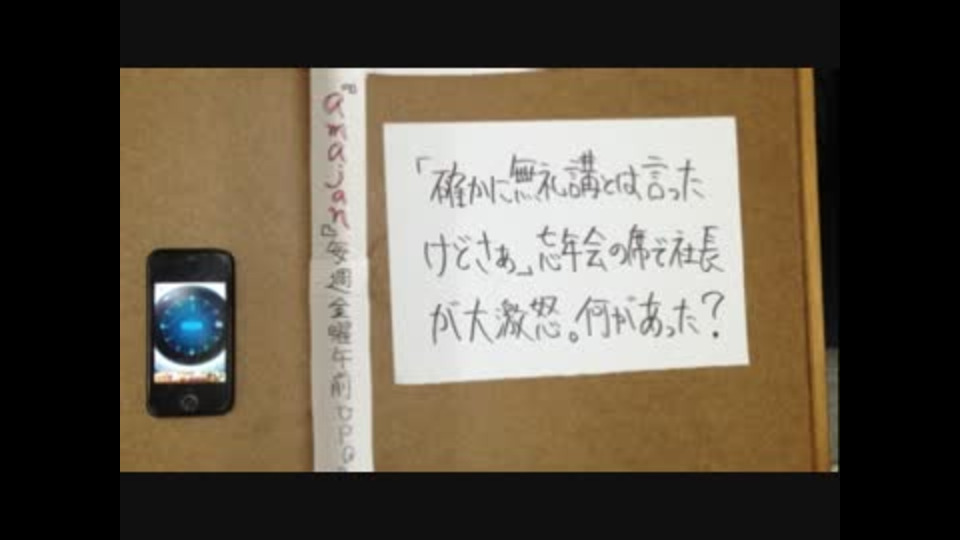 『amajan』毎週金曜午前UPd
「確かに無礼講とは言った
けどさぁ」忘年会の席で社長
が大激怒。何があった？